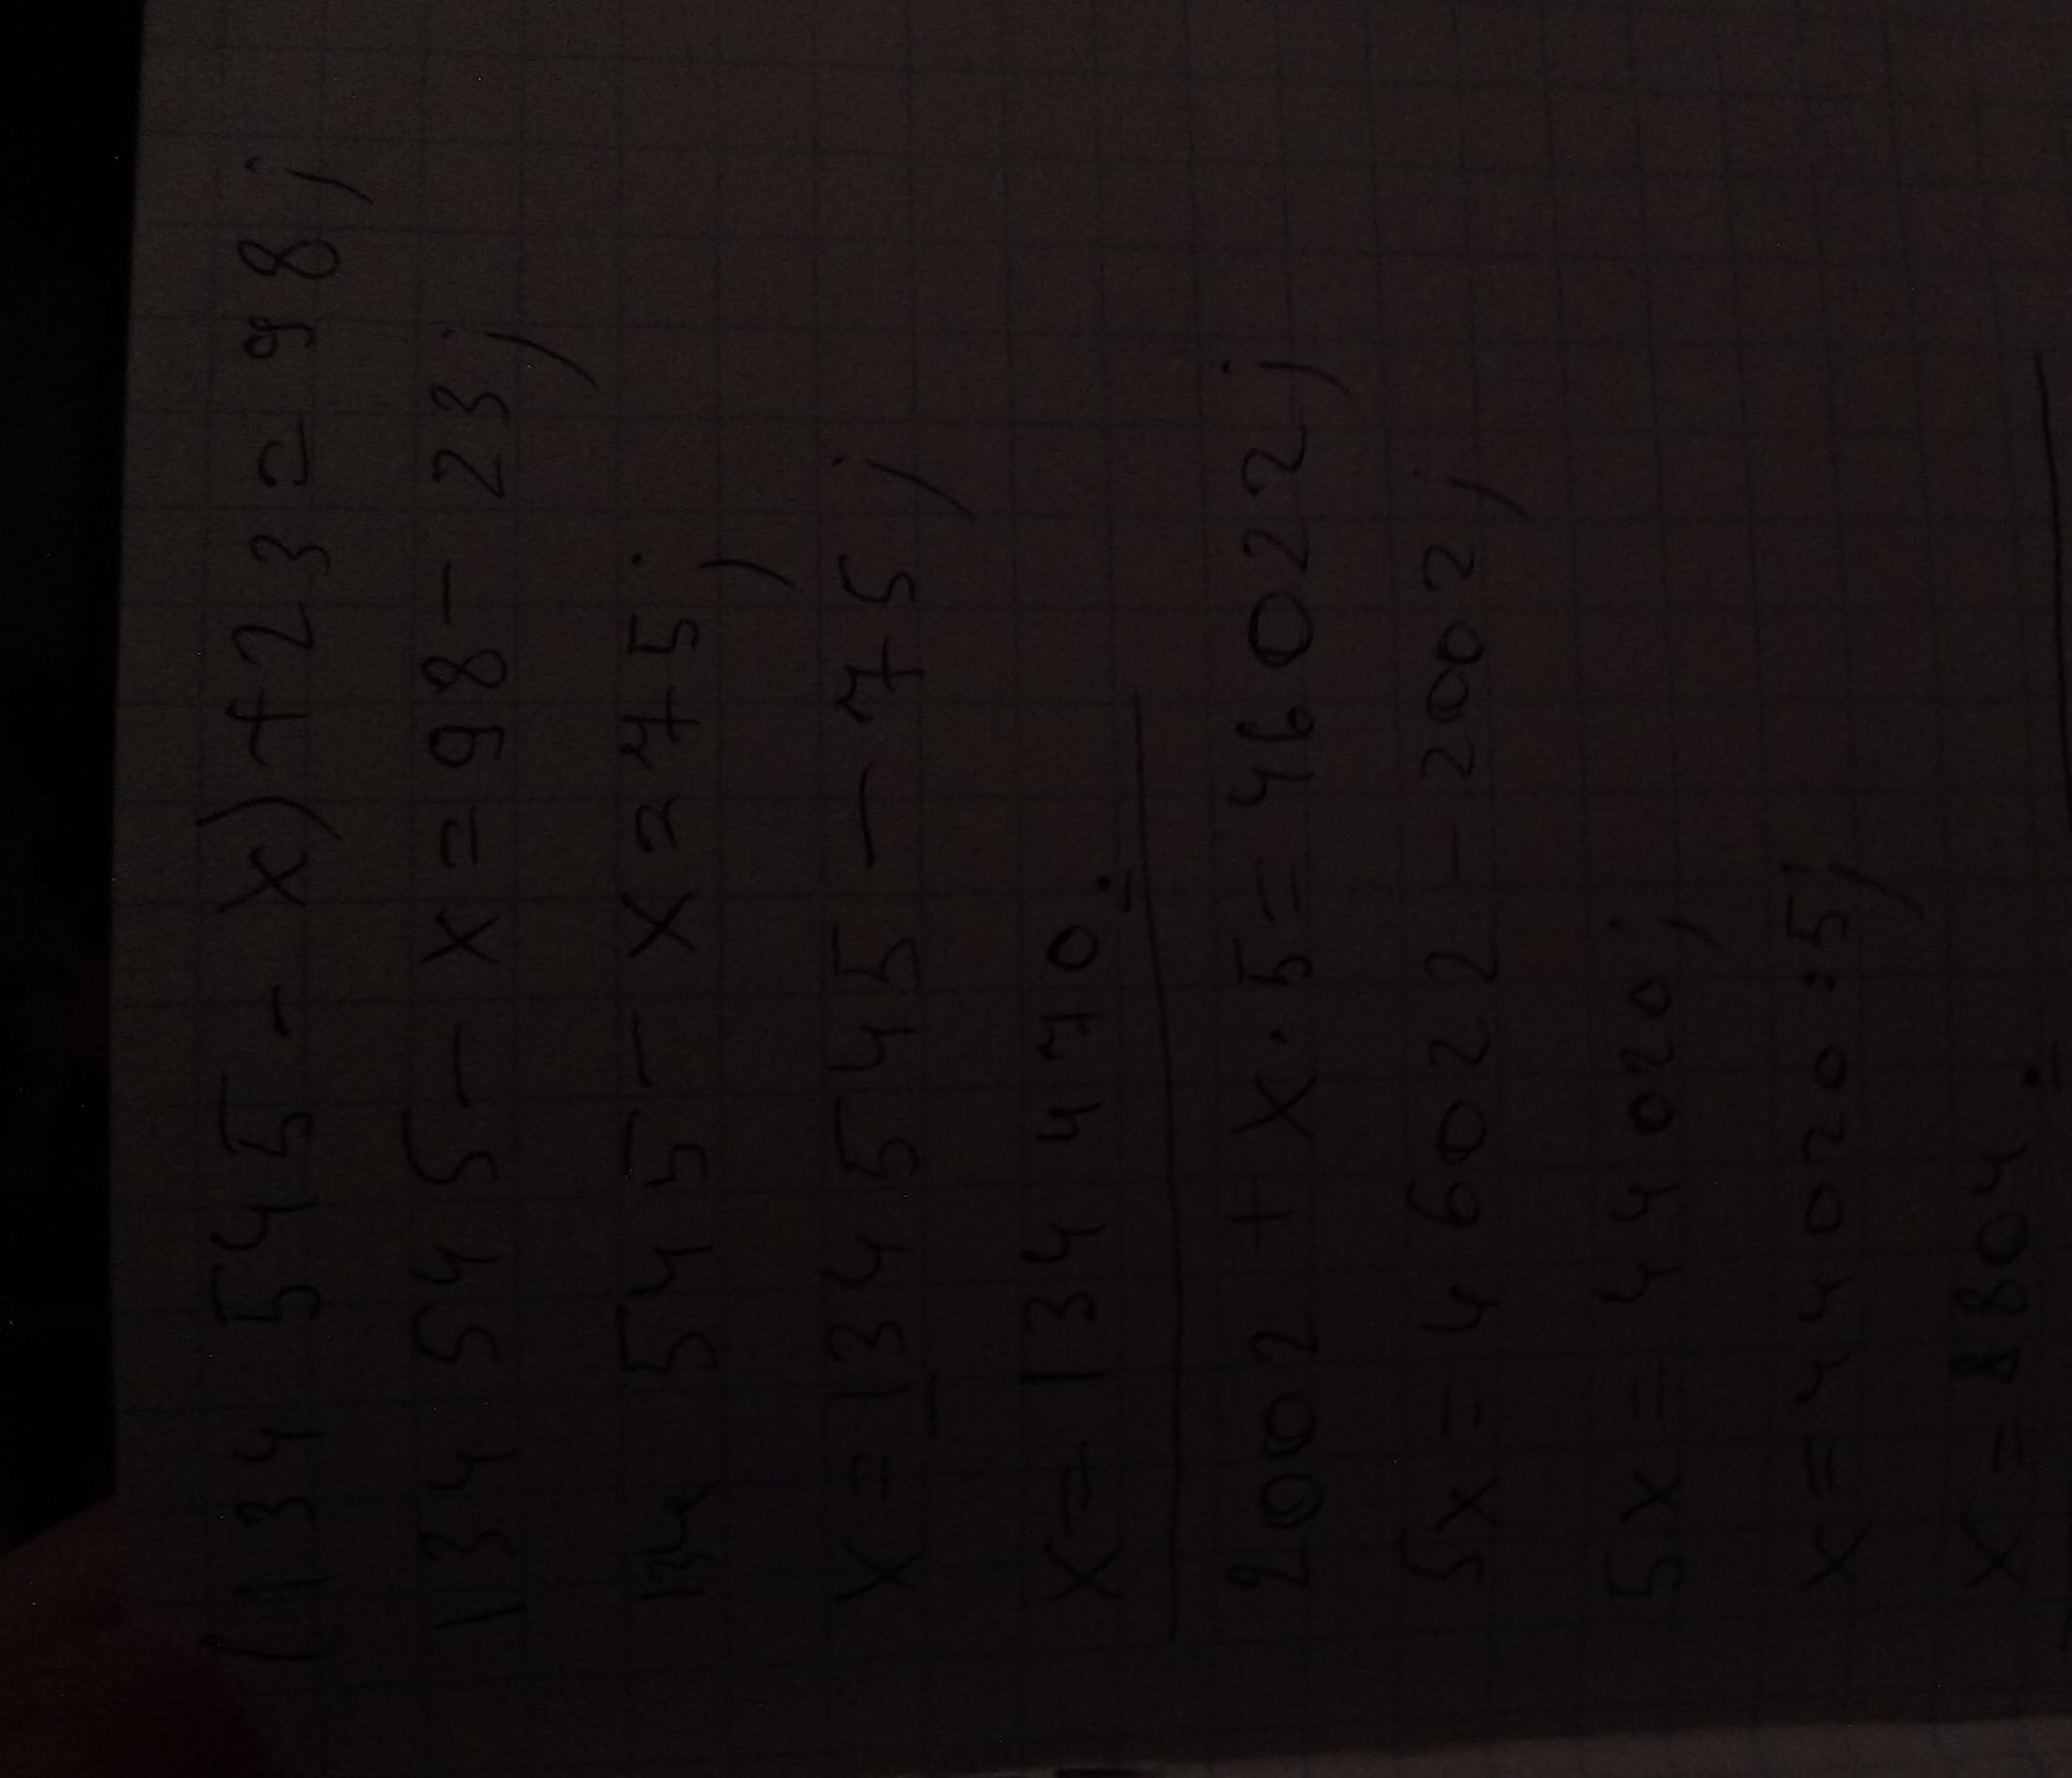 (134 545 - x) + 23 = 98;
134 545 - x = 98 - 23;
134 545 - x = 75;
x = 134 545 - 75;
x = 134 470.
2002 + x · 5 = 46022;
5x = 46022 - 2002;
5x = 44020;
x = 44020 : 5;
x = 8804.